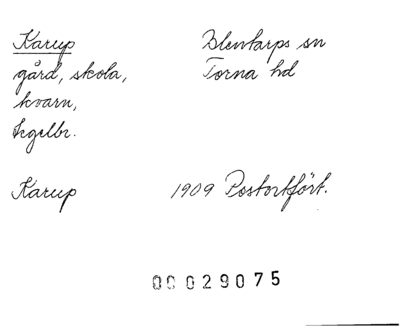 Karup Blentarps sn
gård, skola, Torna hd
kvarn,
tegelbr.
Karup 1909 Postortfört.
00029075